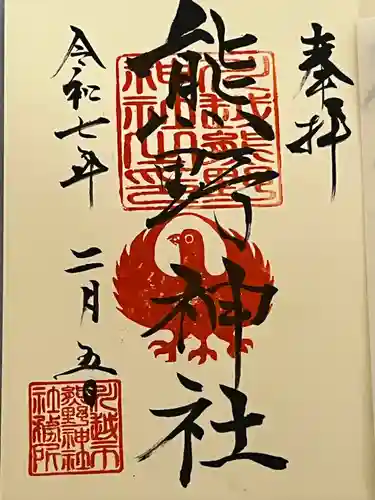 奉拝
熊野神社
令和七年
二月五日
川越熊野
神社之印
川越市
熊野神社
社務所